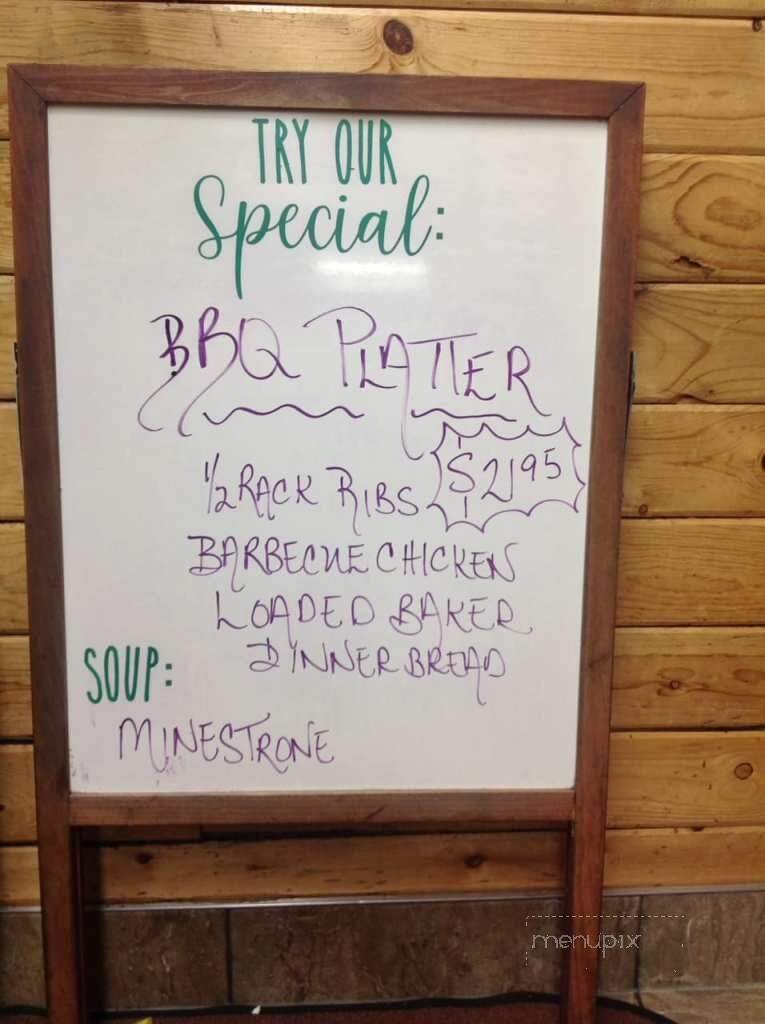 TRY OUR
Special:
BBQ PLATTER
1/2 RACK RIBS $2195
BARBECUE CHICKEN
LOADED BAKER
DINNER BREAD
SOUP:
MINESTRONE
menupix